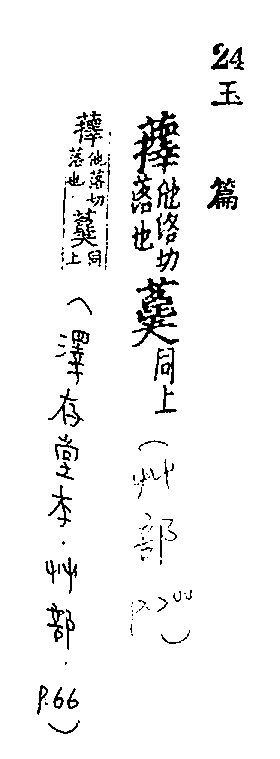 24玉篇
蘀他洛切落也同上(艸部P.200)
蘀他落切落也.同上(澤存堂本.艸部.P.66)